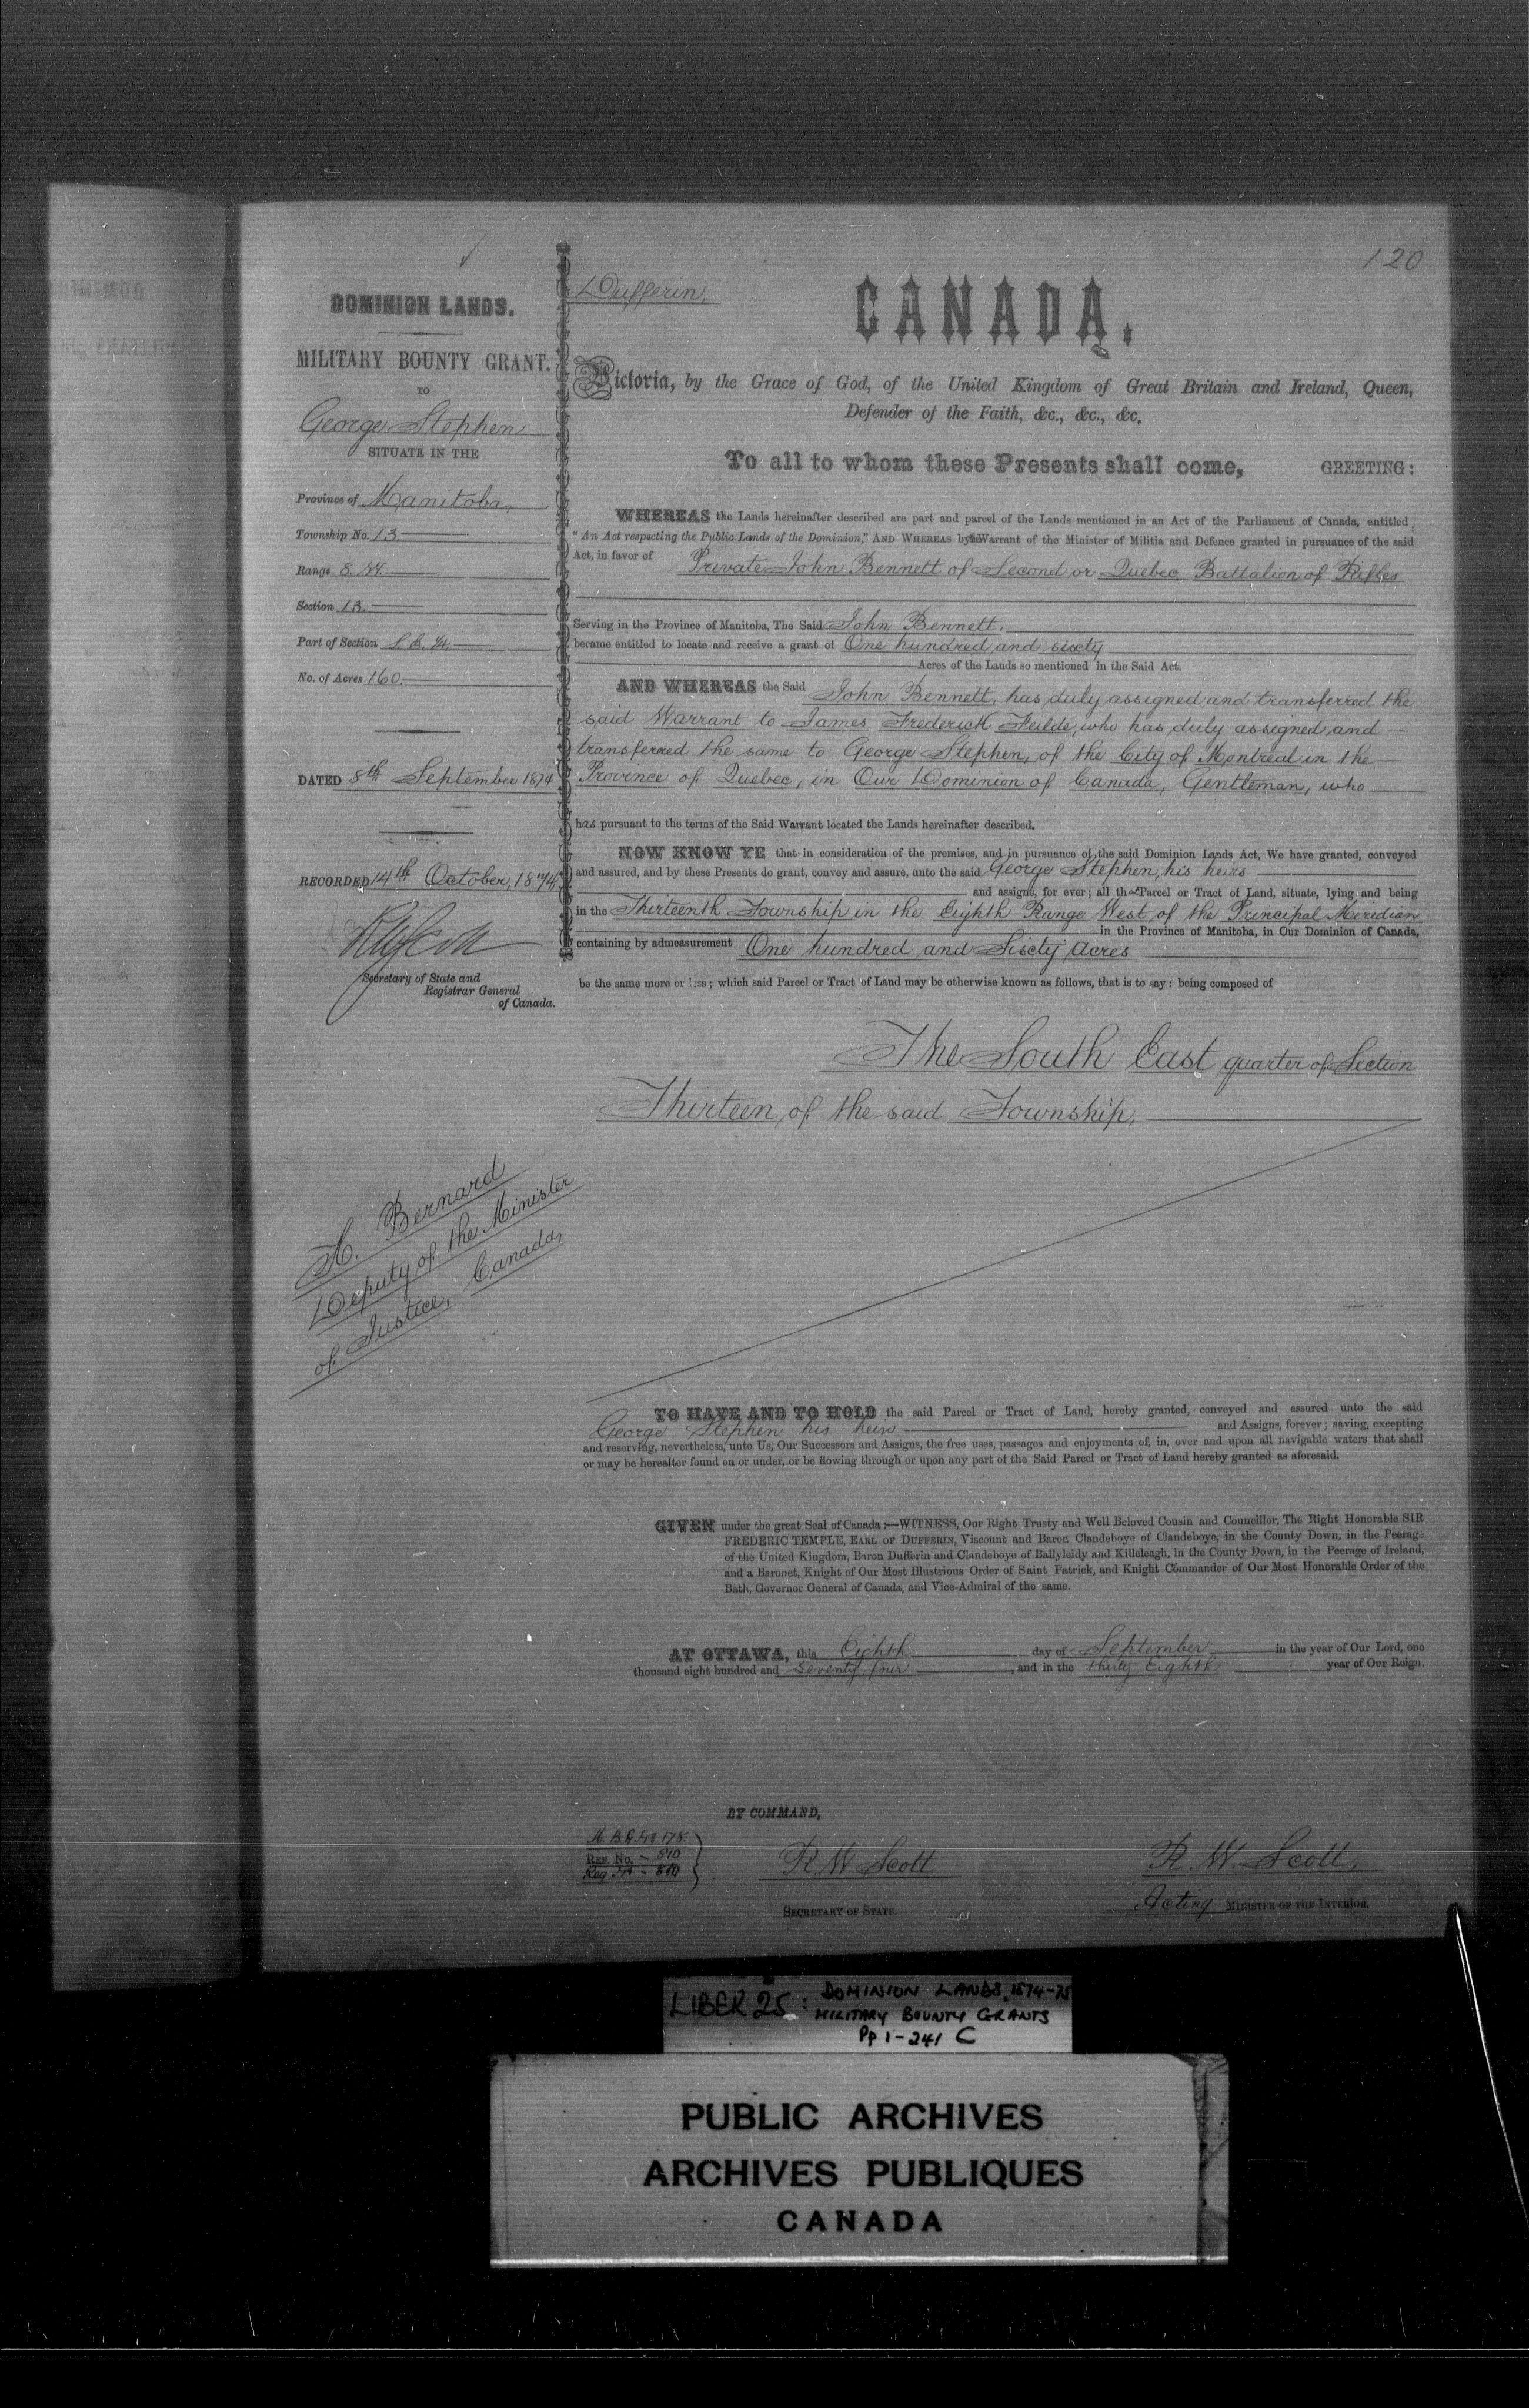 120
DOMINION LANDS.
MILITARY BOUNTY GRANT.
TO
George Stephen
SITUATE IN THE
Province of Manitoba,
Township No. 13
Range 8. W.
Section 13.
Part of Section S. E. 1/4.
No. of Acres 160.
DATED 8th September 1874
RECORDED 14th October, 1874.
Secretary of State and
Registrar General
of Canada.
H. Bernard
Deputy of the Minister
of Justice, Canada,
Dufferin,
CANADA.
Victoria, by the Grace of God, of the United Kingdom of Great Britain and Ireland, Queen,
Defender of the Faith, &c., &c., &c.
To all to whom these Presents shall come, GREETING:
WHEREAS the Lands hereinafter described are part and parcel of the Lands mentioned in an Act of the Parliament of Canada, entitled
"An Act respecting the Public Lands of the Dominion," AND WHEREAS by the Warrant of the Minister of Militia and Defence granted in pursuance of the said
Act, in favor of Private John Bennett of Second or Quebec Battalion of Rifles
Serving in the Province of Manitoba, The Said John Bennett,
became entitled to locate and receive a grant of One hundred and sixty
Acres of the Lands so mentioned in the Said Act.
AND WHEREAS the Said John Bennett, has duly assigned and transferred the
said Warrant to James Frederick Feilde, who has duly assigned and
transferred the same to George Stephen, of the City of Montreal in the
Province of Quebec, in Our Dominion of Canada, Gentleman, who
has pursuant to the terms of the Said Warrant located the Lands hereinafter described.
NOW KNOW YE that in consideration of the premises, and in pursuance of the said Dominion Lands Act, We have granted, conveyed
and assured, and by these Presents do grant, convey and assure, unto the said George Stephen, his heirs
and assigns, for ever; all that Parcel or Tract of Land, situate, lying and being
in the Thirteenth Township in the Eighth Range West of the Principal Meridian
in the Province of Manitoba, in Our Dominion of Canada,
containing by admeasurement One hundred and Sixty acres
be the same more or less; which said Parcel or Tract of Land may be otherwise known as follows, that is to say: being composed of
The South East quarter of Section
Thirteen of the said Township,
TO HAVE AND TO HOLD the said Parcel or Tract of Land, hereby granted, conveyed and assured unto the said
George Stephen his heirs and Assigns, forever; saving, excepting
and reserving, nevertheless, unto Us, Our Successors and Assigns, the free uses, passages and enjoyments of, in, over and upon all navigable waters that shall
or may be hereafter found on or under, or be flowing through or upon any part of the Said Parcel or Tract of Land hereby granted as aforesaid.
GIVEN under the great Seal of Canada:—WITNESS, Our Right Trusty and Well Beloved Cousin and Councillor, The Right Honorable SIR
FREDERIC TEMPLE, EARL OF DUFFERIN, Viscount and Baron Clandeboye of Clandeboye, in the County Down, in the Peerage
of the United Kingdom, Baron Dufferin and Clandeboye of Ballyleidy and Killeleagh, in the County Down, in the Peerage of Ireland,
and a Baronet, Knight of Our Most Illustrious Order of Saint Patrick, and Knight Commander of Our Most Honorable Order of the
Bath, Governor General of Canada, and Vice-Admiral of the same.
AT OTTAWA, this Eighth day of September in the year of Our Lord, one
thousand eight hundred and seventy four, and in the thirty Eighth year of Our Reign.
BY COMMAND,
M. B. G. No 178.
REF. No. - 810
Reg - 810
R. W. Scott
SECRETARY OF STATE.
R. W. Scott,
Acting MINISTER OF THE INTERIOR.
LIBER 25: DOMINION LANDS, 1874-75
MILITARY BOUNTY GRANTS
Pp 1-241 C
PUBLIC ARCHIVES
ARCHIVES PUBLIQUES
CANADA